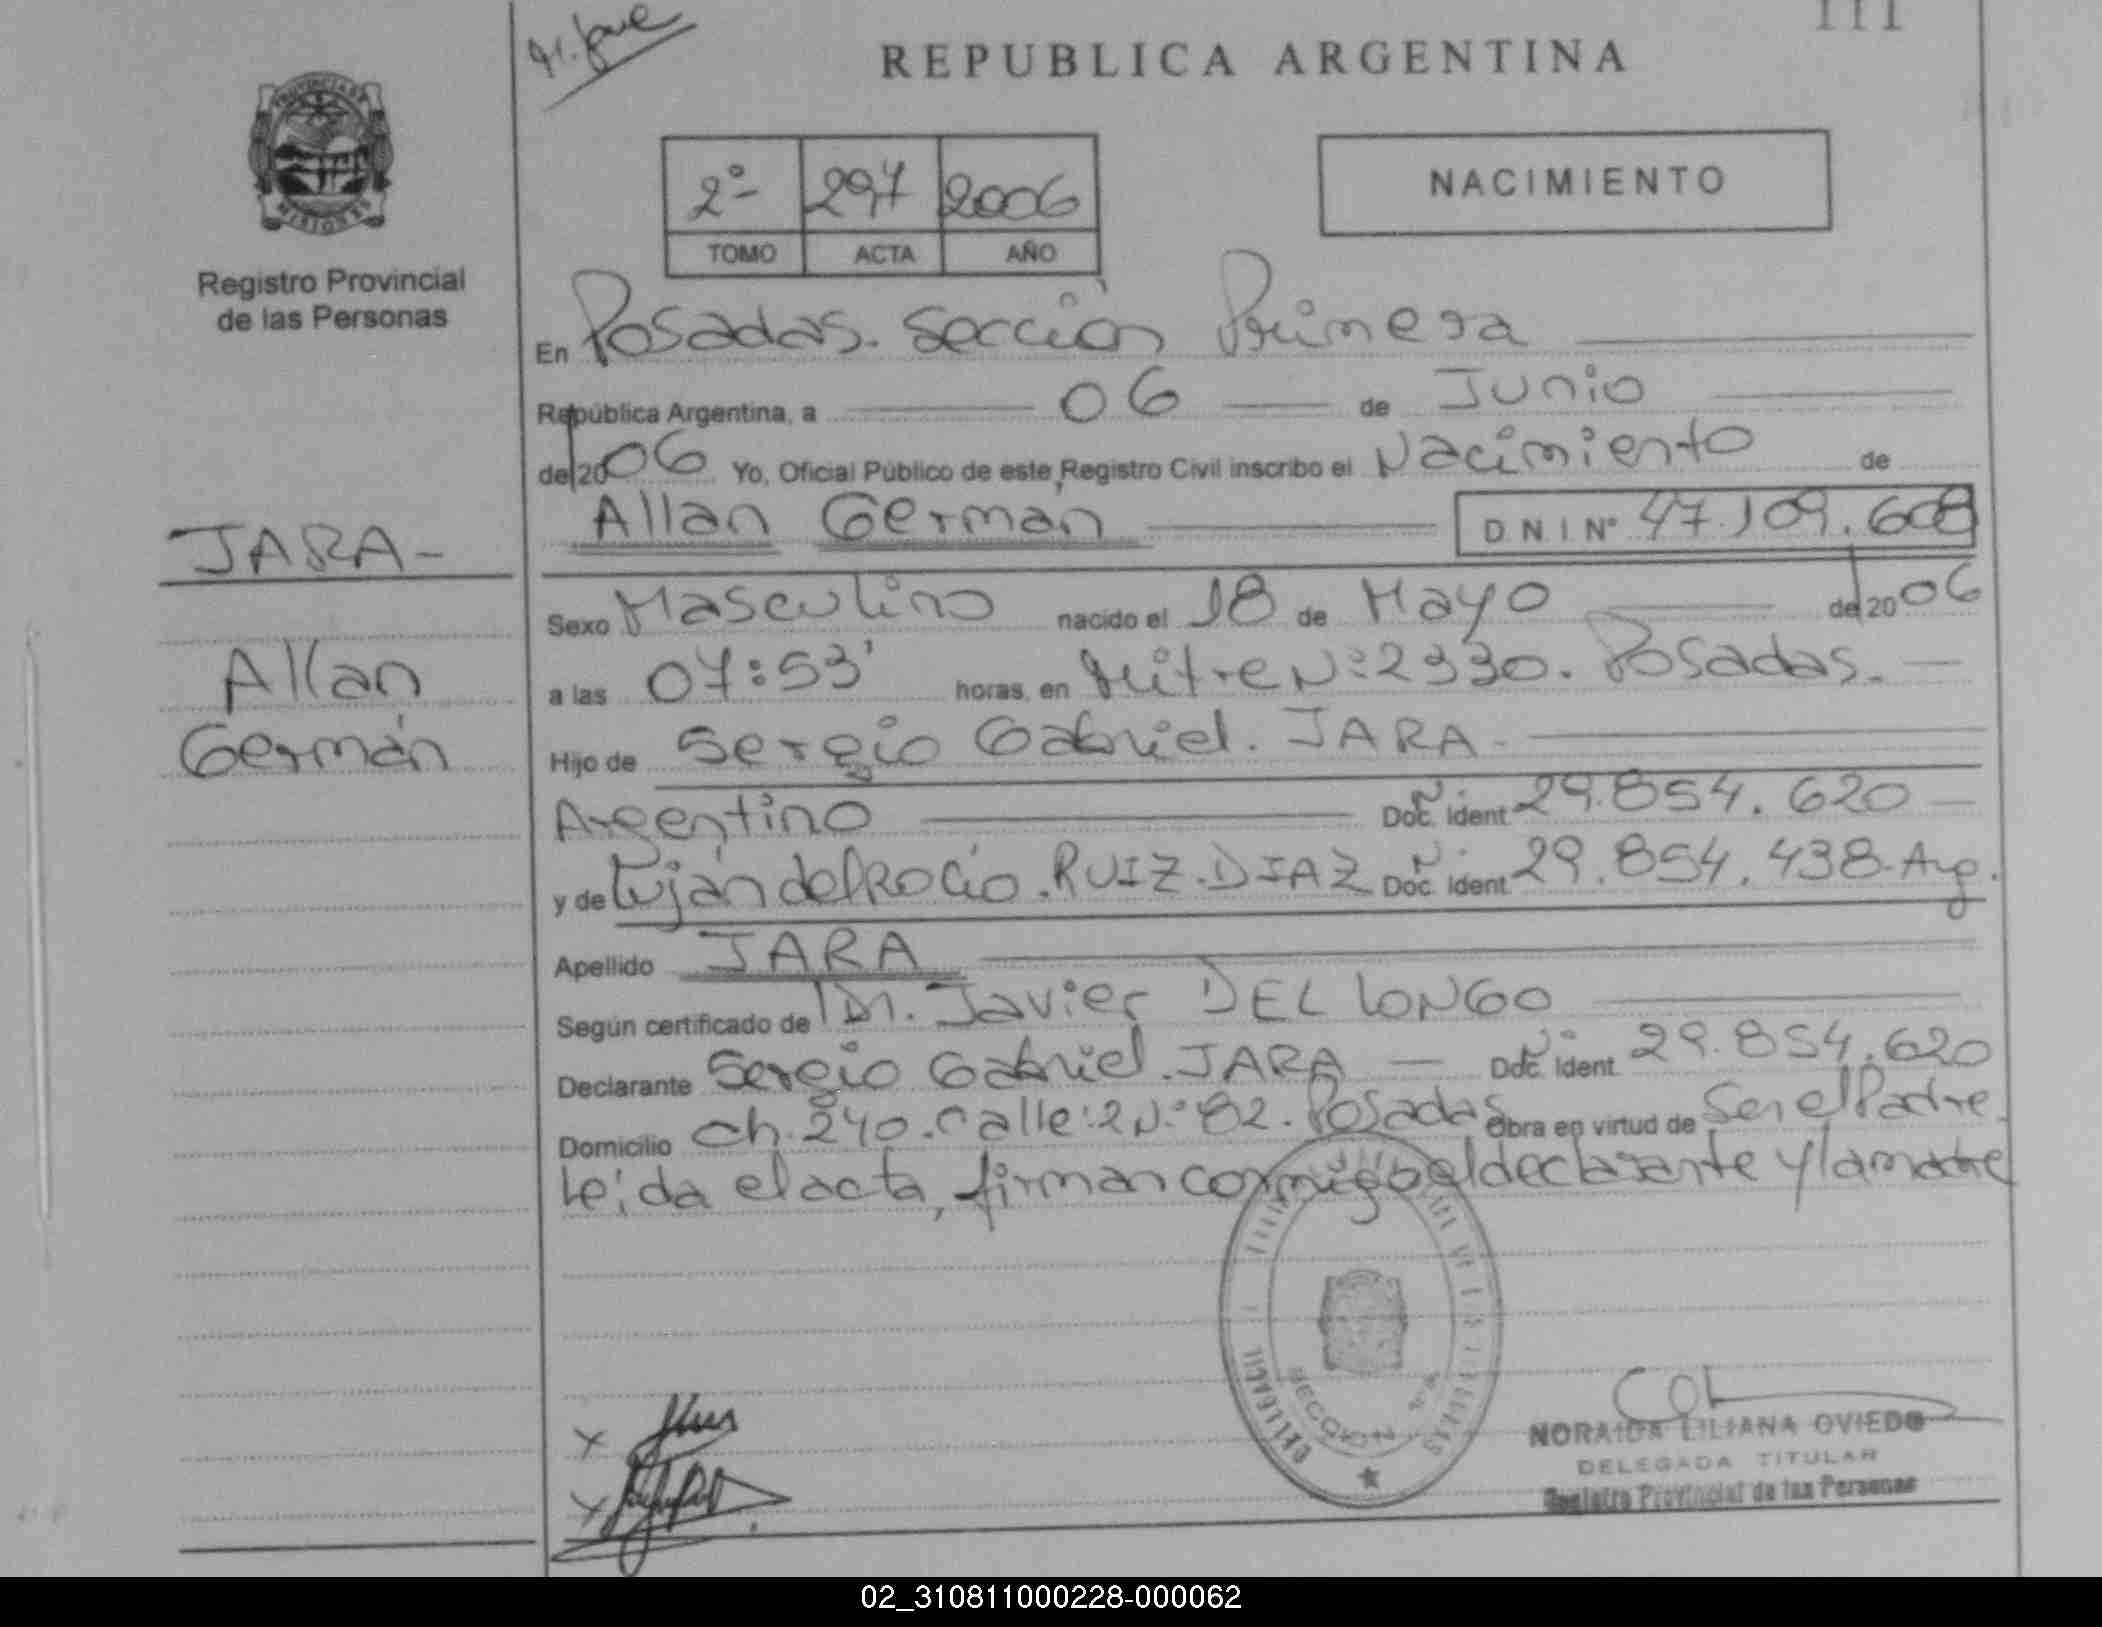 III
REPUBLICA ARGENTINA
PROVINCIA DE
MISIONES
Registro Provincial
de las Personas
2º 297 2006
TOMO ACTA AÑO
NACIMIENTO
En Posadas. Sección Primera
República Argentina, a 06 de Junio
del 2006 Yo, Oficial Público de este Registro Civil inscribo el Nacimiento de
Allan Germán D N I Nº 47.109.608
JARA-
Allan
Germán
Sexo Masculino nacido el 18 de Mayo del 2006
a las 07:53' horas, en Mitre Nº:2330. Posadas.
Hijo de Sergio Gabriel. JARA-
Argentino Doc. Ident 29.854.620
y de Luján del Rocío. RUIZ. DIAZ Doc. Ident 29.854.438-Arg.
Apellido JARA
Según certificado de Dr. Javier DEL LONGO
Declarante Sergio Gabriel. JARA Doc. Ident. 29.854.620
Domicilio Ch. 240. Calle:2 Nº 82. Posadas Obra en virtud de Ser el Padre.
Leída el acta, firman conmigo el declarante y la madre
SECCION
NORAIDA LILIANA OVIEDO
DELEGADA TITULAR
Registro Provincial de las Personas
02_310811000228-000062